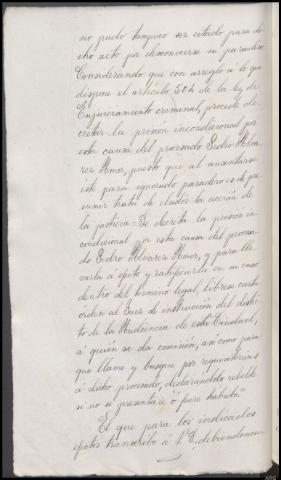 no pudo tampoco ser citado para di-
cho acto por desconocerse su paradero
Considerando: que con arreglo á lo que
dispone el artículo 504 de la ley de
Enjuiciamiento criminal, procede de-
cretar la prision incondicional por
esta causa del procesado Pedro Alva-
rez Amor, puesto que al ausentarse
éste para ignorado paradero es de pre-
sumir trata de eludir la acción de
la justicia = Se decreta la prision in-
condicional por esta causa del procesa-
do Pedro Alvarez Amor, y para lle-
varla á efecto y ratificarla en su caso
dentro del termino legal, librese carta
orden al Juez de instrucción del distri-
to de la Audiencia de esta Ciudad,
á quién se da comisión, así como para
que llame y busque por requisitorias
á dicho procesado, declarandolo rebelde
si no se presentare ó fuere habido."
Lo que para los indicados
efectos transcribo á V.S. debiendome
ARG